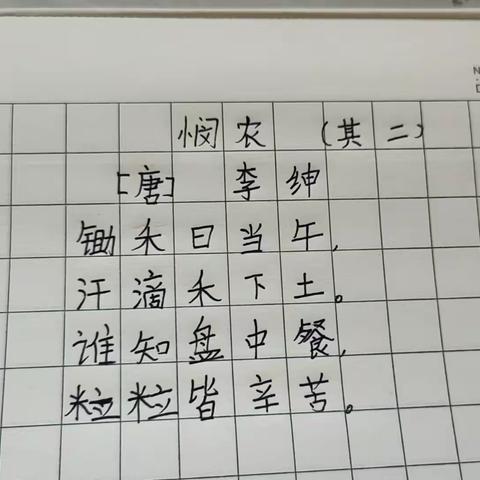 悯农（其二）
[唐] 李绅
锄禾日当午,
汗滴禾下土。
谁知盘中餐,
粒粒皆辛苦。